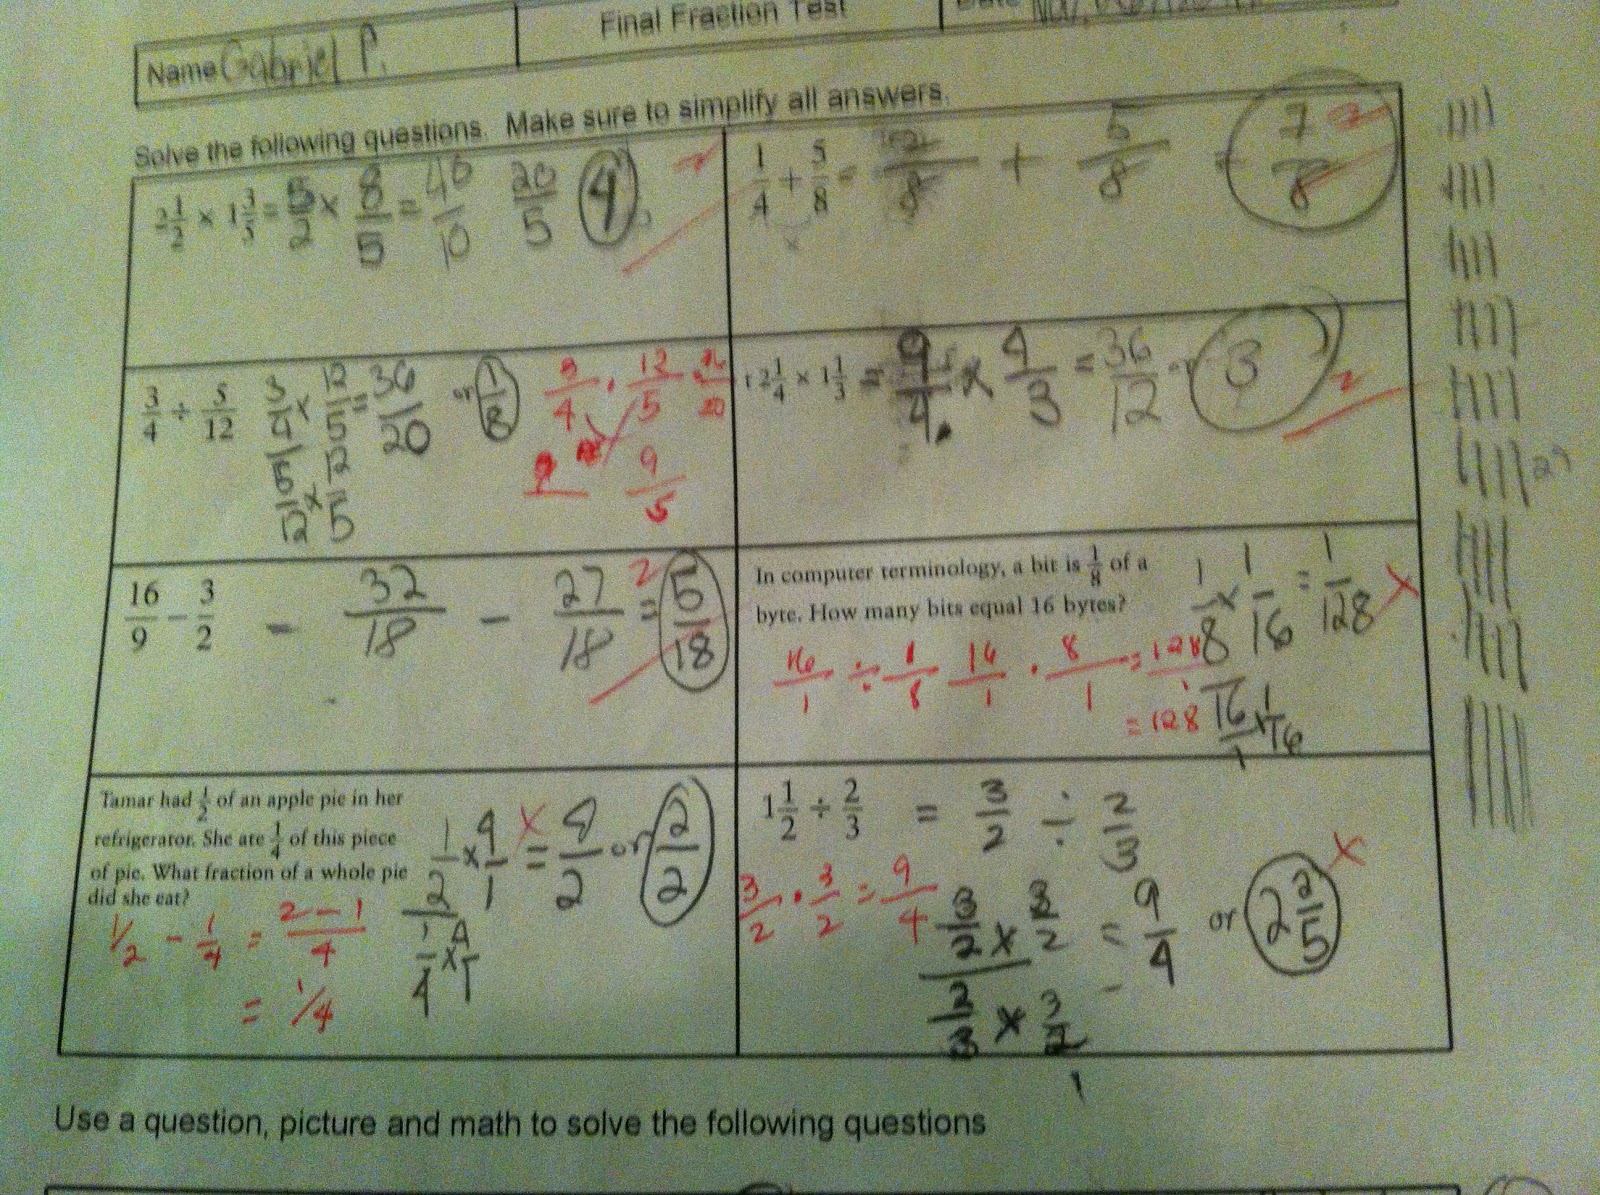 Name Gabriel P.
Final Fraction Test
Date
Solve the following questions. Make sure to simplify all answers.
2 1/2 × 1 3/5 = 5/2 × 8/5 = 40/10 20/5 4
1/4 + 5/8 = 2/8 + 5/8 = 7/8 2
3/4 ÷ 5/12 3/4 × 12/5 = 36/20 or 1/8
5/12 × 12/5
3/4 · 12/5 36/20
9/5
2 1/4 × 1 1/3 = 9/4 × 4/3 = 36/12 or 3 2
16/9 - 3/2 - 32/18 - 27/18 = 5/18 2
In computer terminology, a bit is 1/8 of a
byte. How many bits equal 16 bytes?
1/8 × 1/16 = 1/128 X
16/1 ÷ 1/8 16/1 · 8/1 = 128/1
= 128
16/1 × 1/16
Tamar had 1/2 of an apple pie in her
refrigerator. She ate 1/4 of this piece
of pie. What fraction of a whole pie
did she eat?
1/2 × 4/1 = 4/2 or 2/2 X
1/4 × 4/1
1/2 - 1/4 = 2-1/4
= 1/4
1 1/2 ÷ 2/3 = 3/2 ÷ 2/3
3/2 · 3/2 = 9/4
3/2 × 3/2 = 9/4 or 2 2/5 X
2/3 × 3/2
1
Use a question, picture and math to solve the following questions